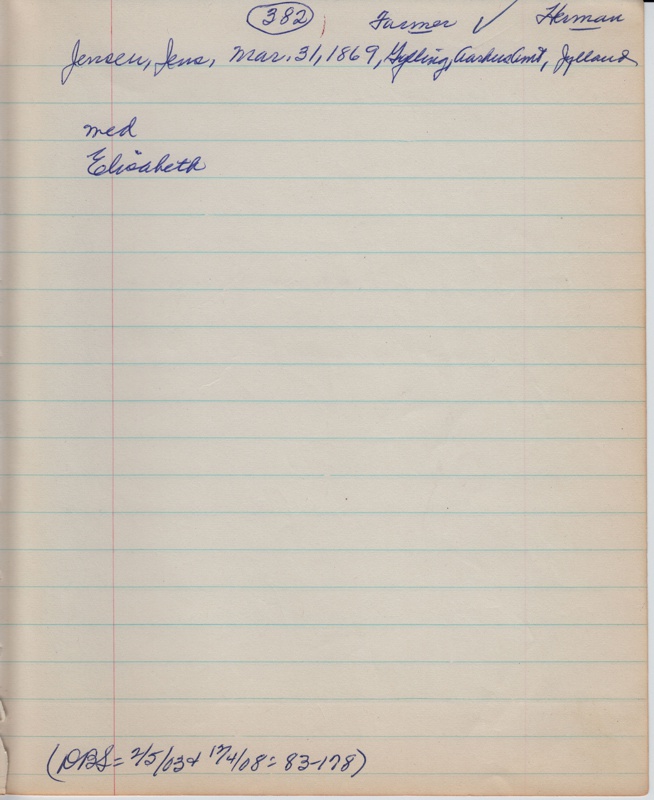 382 Farmer ✓ Herman
Jensen, Jens, Mar. 31, 1869, Gylling, Aarhus Amt, Jylland
med
Elisabeth
(DBS = 2/5/03 & 12/4/08 = 83-178)